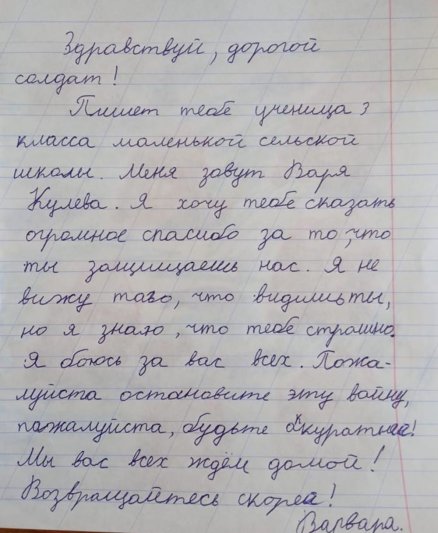 Здравствуй, дорогой
солдат!
Пишет тебе ученица 3
класса маленькой сельской
школы. Меня зовут Варя
Кулева. Я хочу тебе сказать
огромное спасибо за то, что
ты защищаешь нас. Я не
вижу того, что видишь ты,
но я знаю, что тебе страшно.
Я боюсь за вас всех. Пожа-
луйста остановите эту войну,
пожалуйста, будьте аккуратнее!
Мы вас всех ждём домой!
Возвращайтесь скорее!
Варвара.